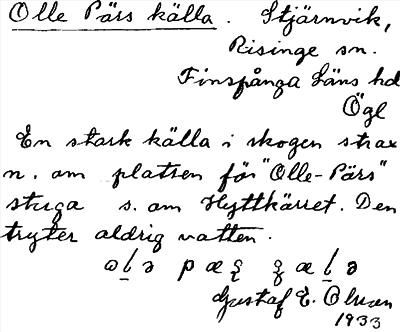 Olle Pärs källa. Stjärnvik,
Risinge sn.
Finspånga Läns hd
Ögl
En stark källa i skogen strax
n. om platsen för "Olle-Pärs"
stuga s. om Hyttkärret. Den
tryter aldrig vatten.
Gustaf E. Olsson
1933